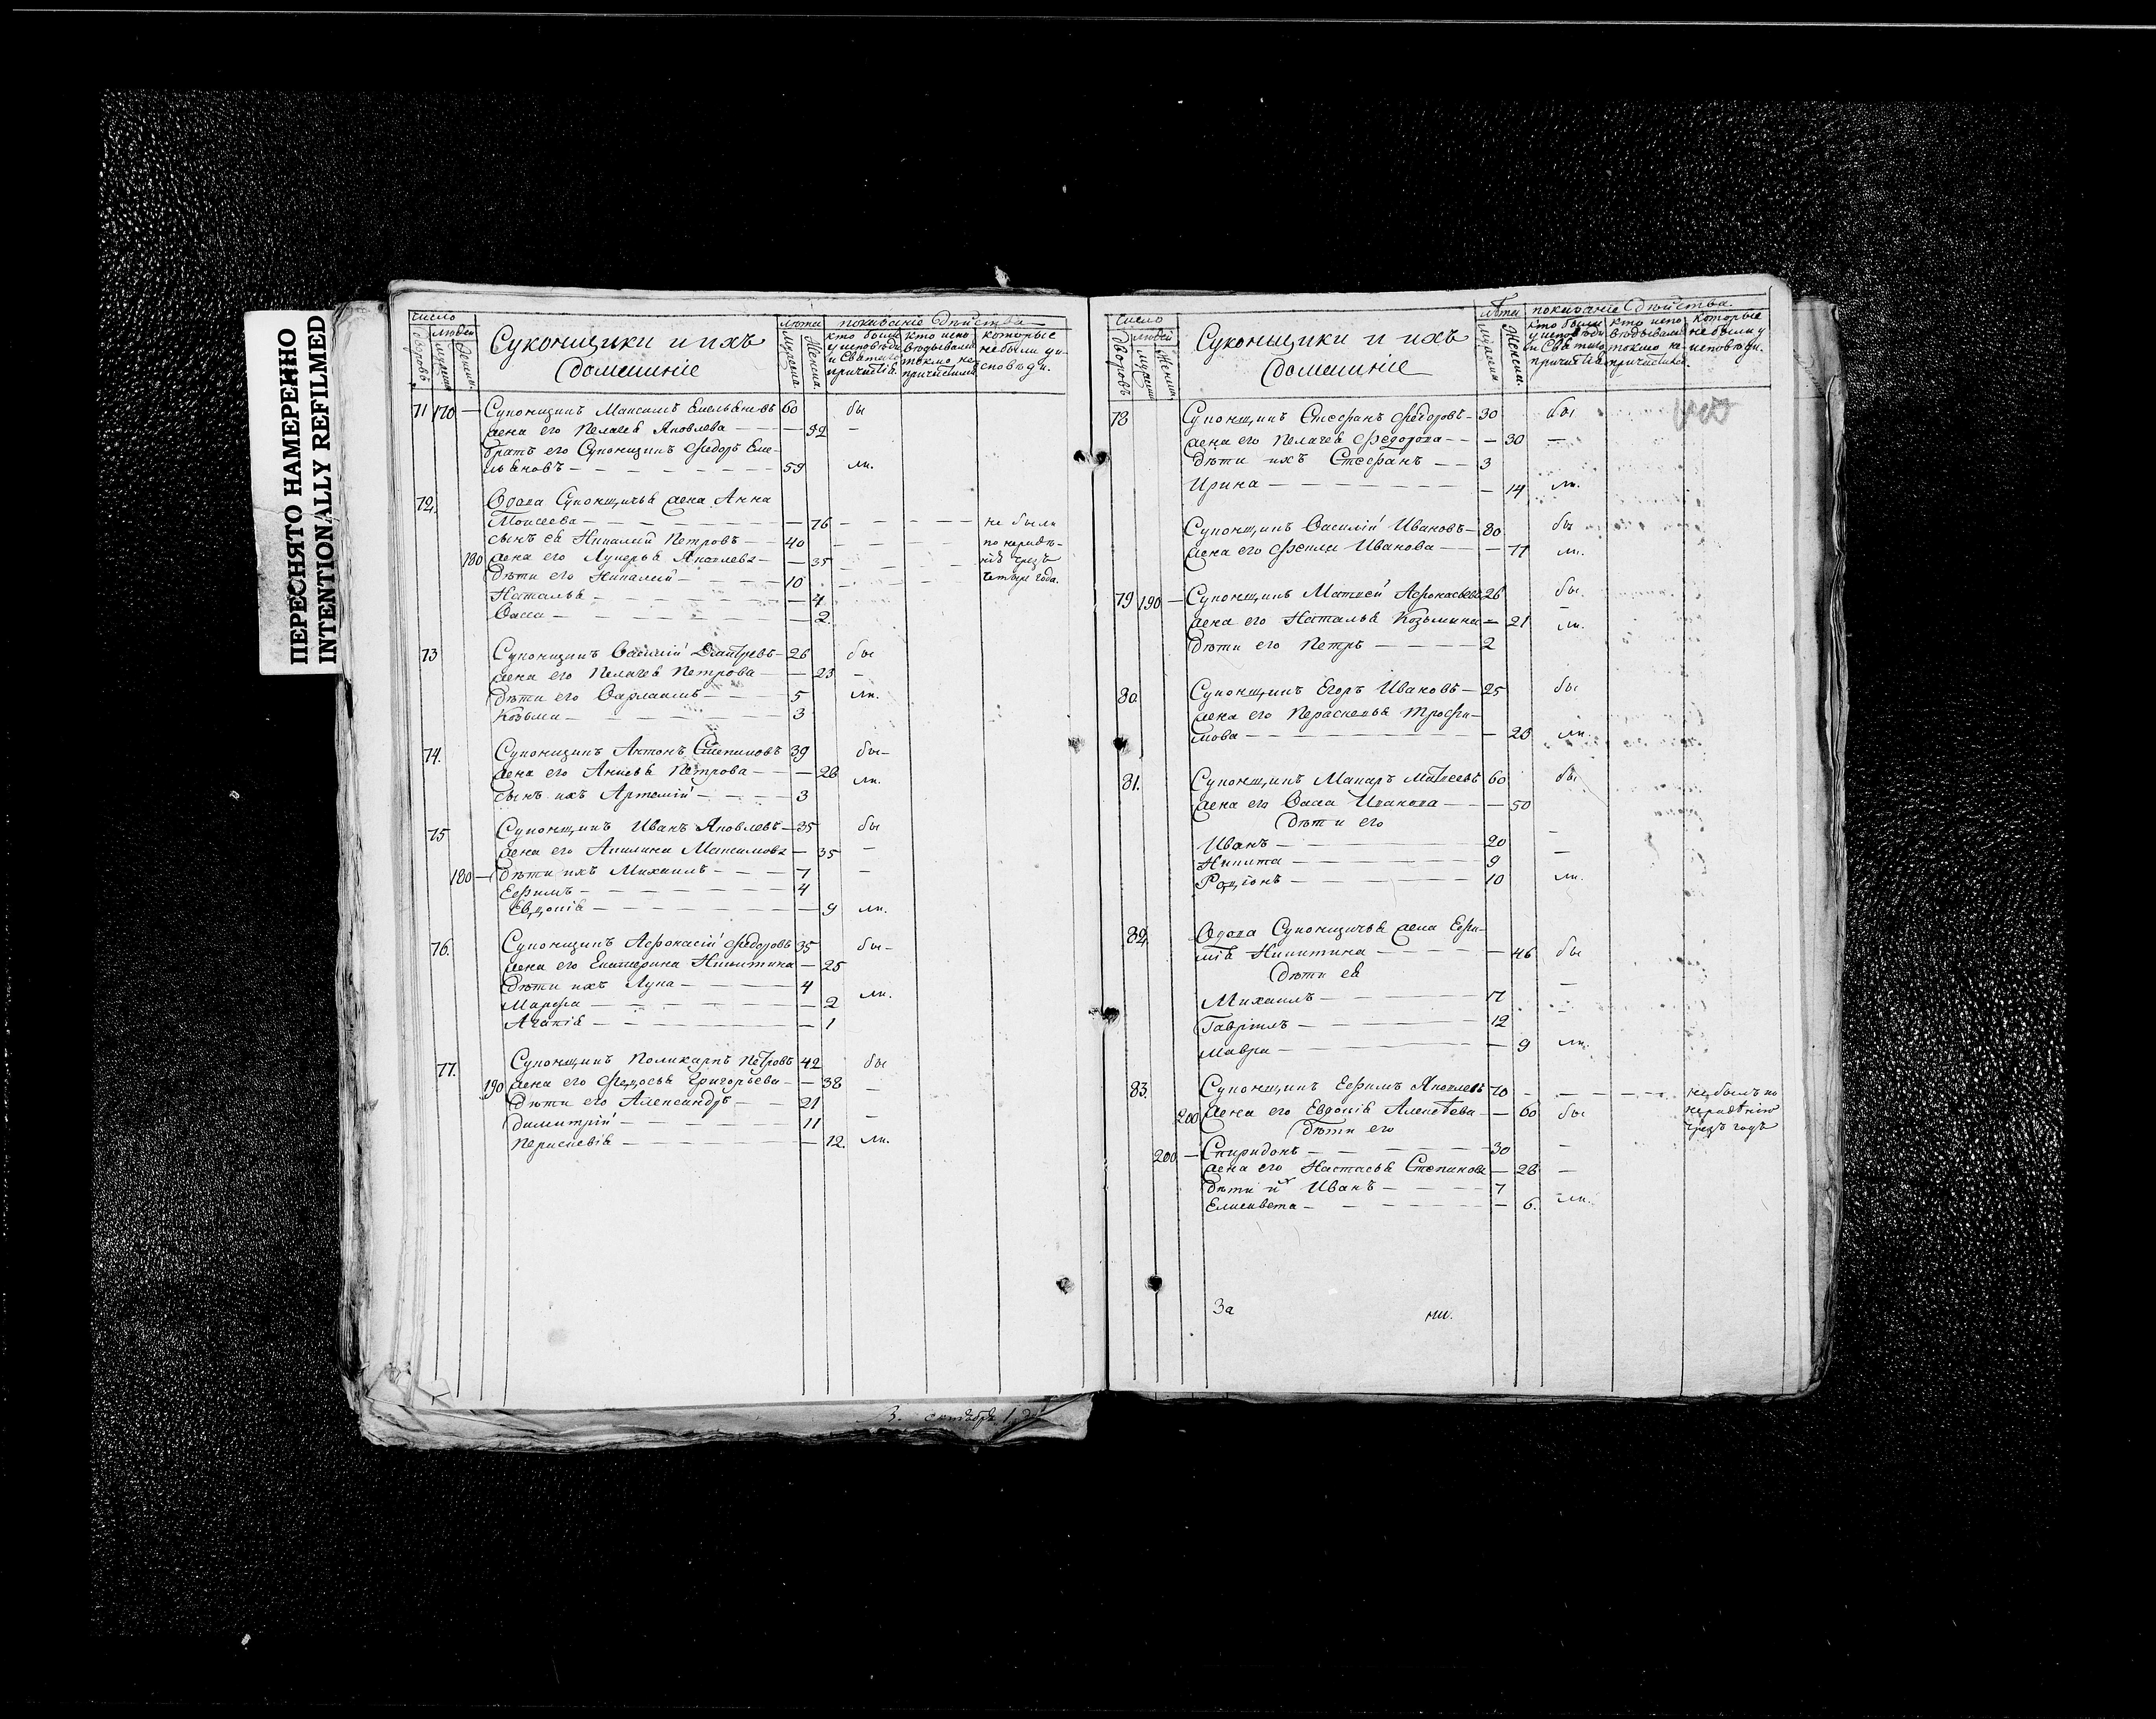 ПЕРЕСНЯТО НАМЕРЕННО
INTENTIONALLY REFILMED
число
людей
дворовъ
Суконщики и ихъ
домашніе
лѣта
показаніе дѣйства
кто были у исповѣди и святаго причастія
кто исповѣдывались токмо не причастились
которые не были у исповѣди.
71 170 — Суконщикъ Максимъ Емельяновъ 60 бы
жена его Пелагея Яковлева — — — 92 —
братъ его Суконщикъ Федоръ Еме-
льяновъ — 59 ли.
72. Вдова Суконщичья жена Анна
Моисеева — — 76 — — — — не были
сынъ ея Николай Петровъ — 40 — — — по нерадѣ-
180 жена его Лукерья Яковлева — — 35 — — — нію чрезъ
дѣти его Николай — 10 — — — четыре года.
Наталья — — 4
Васса — — 2.
73 Суконщикъ Василій Дмитревъ — 26 бы
жена его Пелагея Петрова — — 23 —
дѣти его Варлаамъ — 5 ли.
Козьма — 3
74. Суконщикъ Антонъ Степановъ 39 бы-
жена его Анисья Петрова — — 28 ли.
сынъ ихъ Артемій — 3
75 Суконщикъ Иванъ Яковлевъ — 35 бы
жена его Акилина Максимова — 35 —
180 — дѣти ихъ Михаилъ — 7 —
Ефимъ — 4
Евдокія — — 9 ли.
76. Суконщикъ Афонасій Федоровъ 35 бы-
жена его Екатерина Никитина — 25
дѣти ихъ Лука — 4
Марфа — — 2 ли.
Агапія — — 1
77. Суконщикъ Поликарпъ Петровъ 42 бы
190 жена его Федосья Григорьева — — 38 —
дѣти его Александръ — 21
Димитрій — 11 —
Параскевія — — 12. ли.
3. октября
число
людей
дворовъ
Суконщики и ихъ
домашніе
лѣта
показаніе дѣйства.
кто были у исповѣди и святаго причастія
кто исповѣдывались токмо не причастились.
которые не были у исповѣди.
78 Суконщикъ Стефанъ Федоровъ — 30 бы
жена его Пелагея Федорова — — 30 —
дѣти ихъ Стефанъ — 3
Ирина — — 14 ли.
Суконщикъ Василій Ивановъ — 80 бы
жена его Фекла Иванова — — 71 ли.
79 190 — Суконщикъ Матвей Афонасьевъ 26 бы.
жена его Наталья Козьмина — 21 ли.
дѣти его Петръ — 2
80. Суконщикъ Егоръ Ивановъ — 25 бы
жена его Парасковья Трофи-
мова — — 23 ли.
81. Суконщикъ Макаръ Матвеевъ 60 бы
жена его Васса Иванова — — 50
дѣти его
Иванъ — 20 —
Никита — 9 —
Родіонъ — 10 ли.
82. Вдова Суконщичья жена Ефи-
мія Никитина — — 46 бы
дѣти ея
Михаилъ — 17 —
Гавріилъ — 12 —
Мавра — — 9 ли.
83. Суконщикъ Ефимъ Яковлевъ 70 — — — — не былъ по
200 жена его Евдокія Алексѣева — — 60 бы нерадѣнію
дѣти его чрезъ годъ
200 — Спиридонъ — 30 —
жена его Настасья Степанова — 28 —
дѣти их Иванъ — 7
Елисавета — — 6. ли.
За